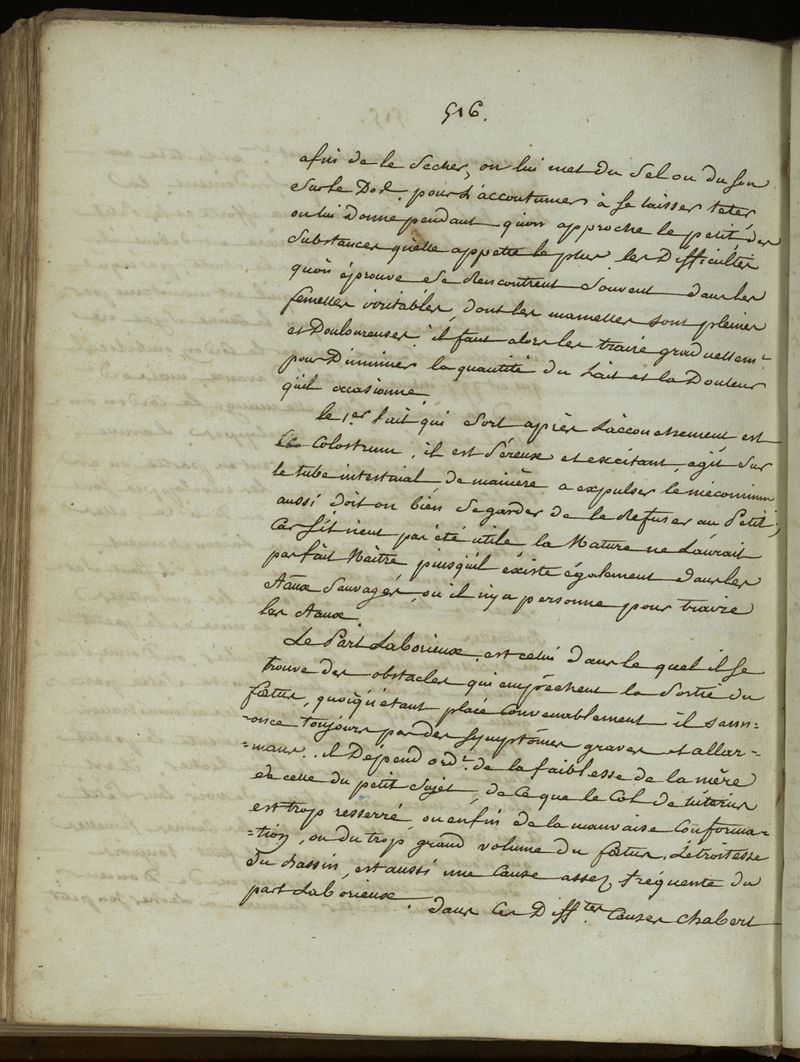 516.
afin de le Secher, on lui met du Sel ou du Son
Sur le Dos. pour L'accoutumer à Se laisser teter
on lui donne pendant qu'on approche le petit, des
Substances qu'elle appette le plus. les Difficultés
quon éprouve Se Rencontrent Souvent dans les
femelles irritables, dont les mamelles sont pleines
et Douloureuses. il faut alors les traire graduellemt
pour Diminuer la quantité du Lait et la Douleur
qu'il occasionne.
le 1er Lait qui Sort après L'accouchement est
Le Colostrum, il est Séreux et excitant, agit Sur
le tube intestinal de manière a expulser le méconium
aussi doit on bien Se garder de le Refuser au Petit;
Car S'il n'eut pas été utile la Nature ne L'aurait
pas fait Naître puisqu'il existe également dans les
Aaux Sauvages, ou il n'y a personne pour traire
les Aaux.
Le Part Laborieux, est celui dans le quel il Se
trouve des obstacles qui empêchent la Sortie du
fœtus, quoiqu'étant placé Convenablement il S'ann-
-once toujours par des Symptômes graves et allar-
-mans. il Dépend ordt de la faiblesse de la mère
de celle du petit Sujet, de Ce que le Col de L'utérus
est trop resserré, ou enfin de la mauvaise Conforma-
-tion, ou du trop grand volume du fœtus. L'étroitesse
du Bassin, est aussi une Cause assez fréquente du
part Laborieux.
dans Ces Difftes Causes Chabert